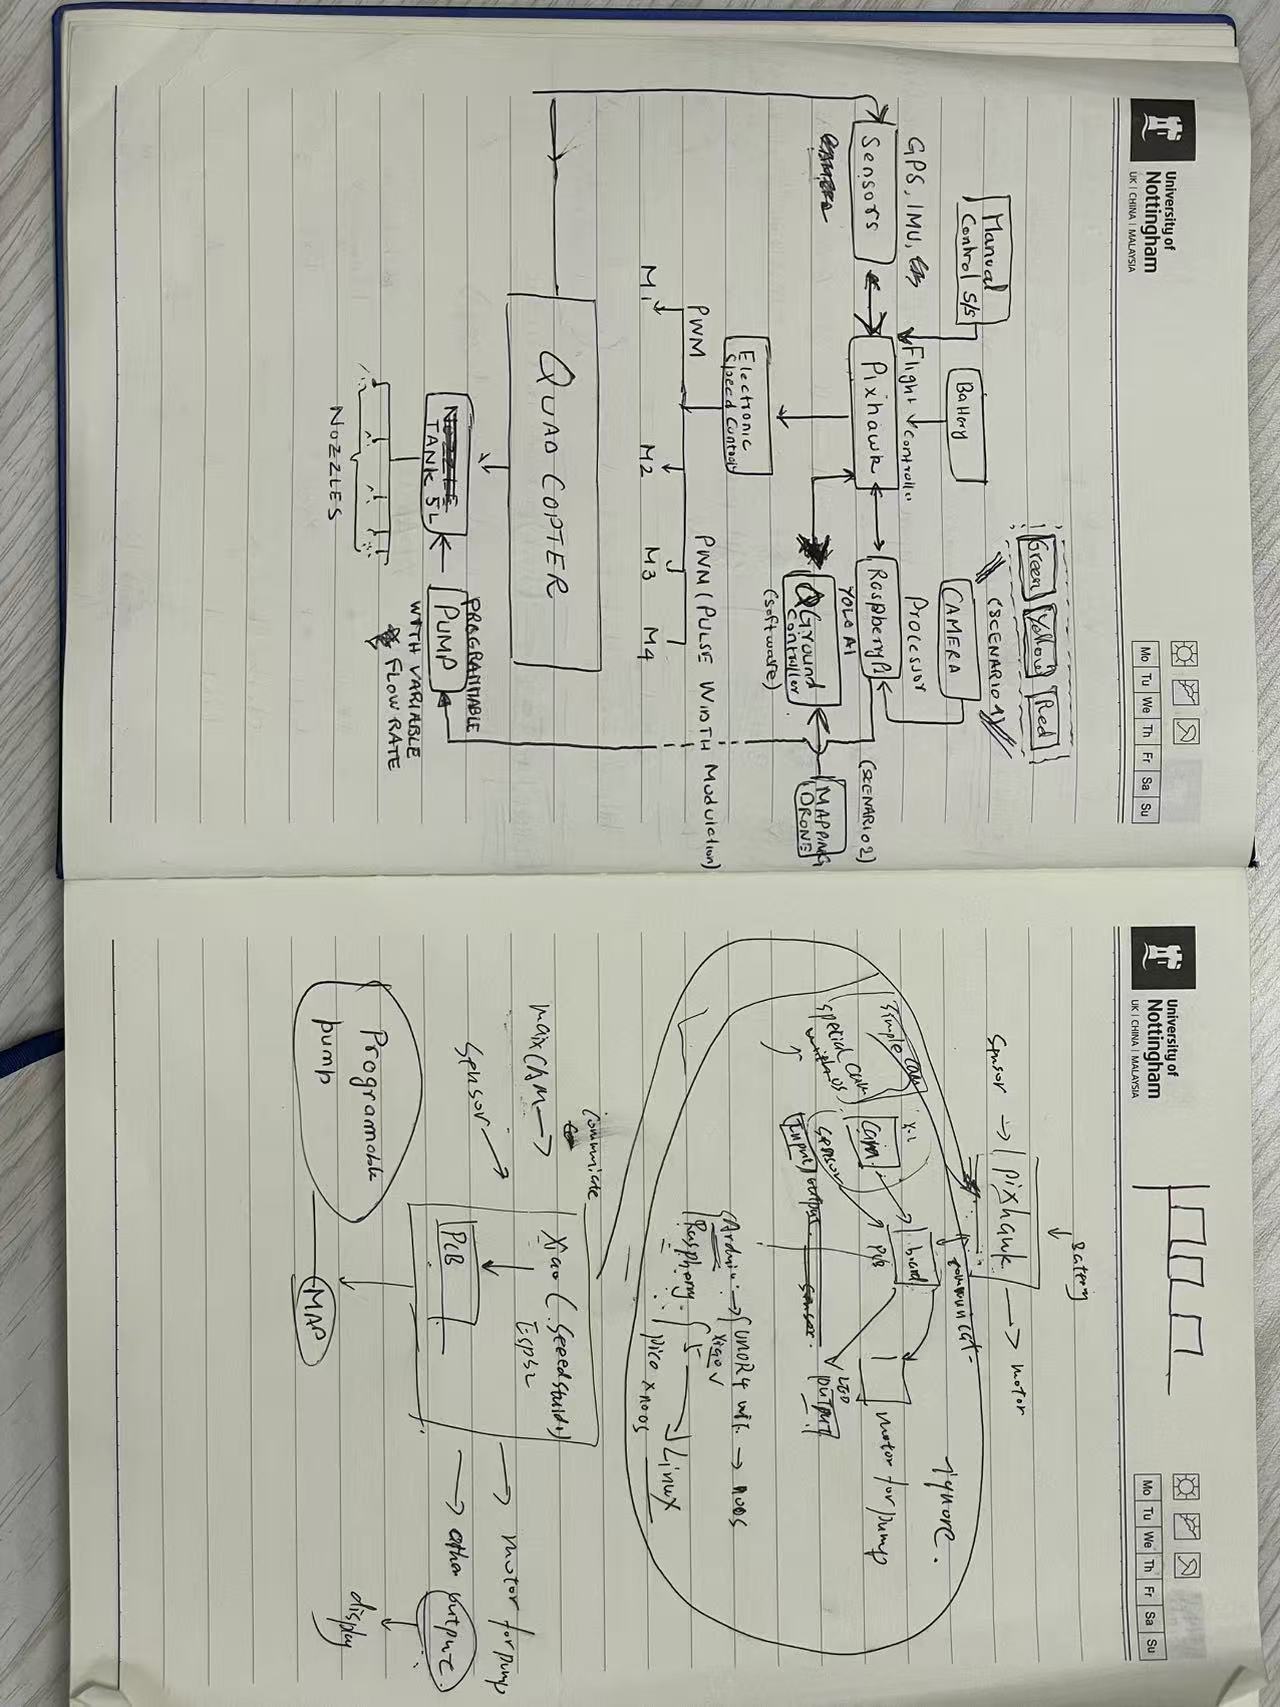 University of
Nottingham
UK | CHINA | MALAYSIA
Mo Tu We Th Fr Sa Su
Green Yellow Red
(SCENARIO 1)
Manual
Control S/S
Battery
CAMERA
GPS, IMU,
Flight Controller
Processor
Sensors
Pixhawk
Raspberry Pi
(SCENARIO 2)
YOLO AI
CAMERA
QGround
Controller
(software)
MAPPING
DRONE
Electronic
Speed Control
PWM
PWM (PULSE WIDTH Modulation)
M1 M2 M3 M4
QUAD COPTER
PROGRAMMABLE
NOZZLE
TANK 5L
PUMP
WITH VARIABLE
FLOW RATE
NOZZLES
University of
Nottingham
UK | CHINA | MALAYSIA
Mo Tu We Th Fr Sa Su
Battery
Sensor → pixhawk → motor
ignore.
simple cam
special cam
cam
board
PCB
motor for pump
sensor
LED
Input/output
sensor
output
Arduino → UNO R4 wifi → no OS
xiao
Raspberry 5 → Linux
pico x no OS
communicate
maixCAM →
xiao (seeedstudio)
ESP32
sensor
PCB
→ motor for pump
→ other output
display
Programable
pump
MAP